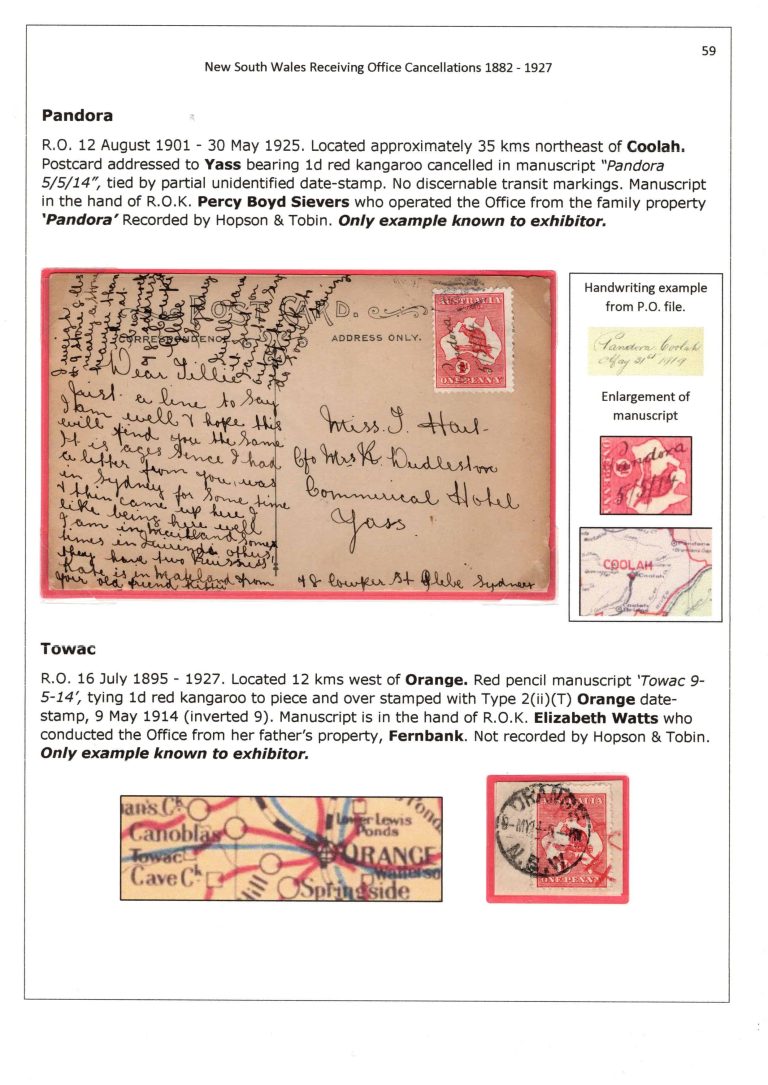 59
New South Wales Receiving Office Cancellations 1882 - 1927
Pandora
R.O. 12 August 1901 - 30 May 1925. Located approximately 35 kms northeast of Coolah.
Postcard addressed to Yass bearing 1d red kangaroo cancelled in manuscript "Pandora
5/5/14", tied by partial unidentified date-stamp. No discernable transit markings. Manuscript
in the hand of R.O.K. Percy Boyd Sievers who operated the Office from the family property
'Pandora' Recorded by Hopson & Tobin. Only example known to exhibitor.
POST CARD.
CORRESPONDENCE
ADDRESS ONLY.
AUSTRALIA
Pandora
5/5/14
ONE PENNY
Dear Tillie
Just a line to say
I am well & hope this
will find you the same
It is ages sence I had
a letter from you, was
in Sydney for some time
& then came up here I
like being here well
I am in Maitland some
times in others
they have two
Kate is in Maitland from
your old friend
Miss. T. Hart
C/o Mrs K. Dudleston
Commercial Hotel
Yass
48 Cowper St Glebe Sydney
Handwriting example
from P.O. file.
Pandora Coolah
May 31st 1919
Enlargement of
manuscript
Pandora
5/5/14
COOLAH
Coolah
Towac
R.O. 16 July 1895 - 1927. Located 12 kms west of Orange. Red pencil manuscript 'Towac 9-
5-14', tying 1d red kangaroo to piece and over stamped with Type 2(ii)(T) Orange date-
stamp, 9 May 1914 (inverted 9). Manuscript is in the hand of R.O.K. Elizabeth Watts who
conducted the Office from her father's property, Fernbank. Not recorded by Hopson & Tobin.
Only example known to exhibitor.
an's Ck
Canoblas
Towac
Cave Ck
Hill
Lower Lewis
Ponds
ORANGE
Springside
ORANGE
N.S.W.
ONE PENNY